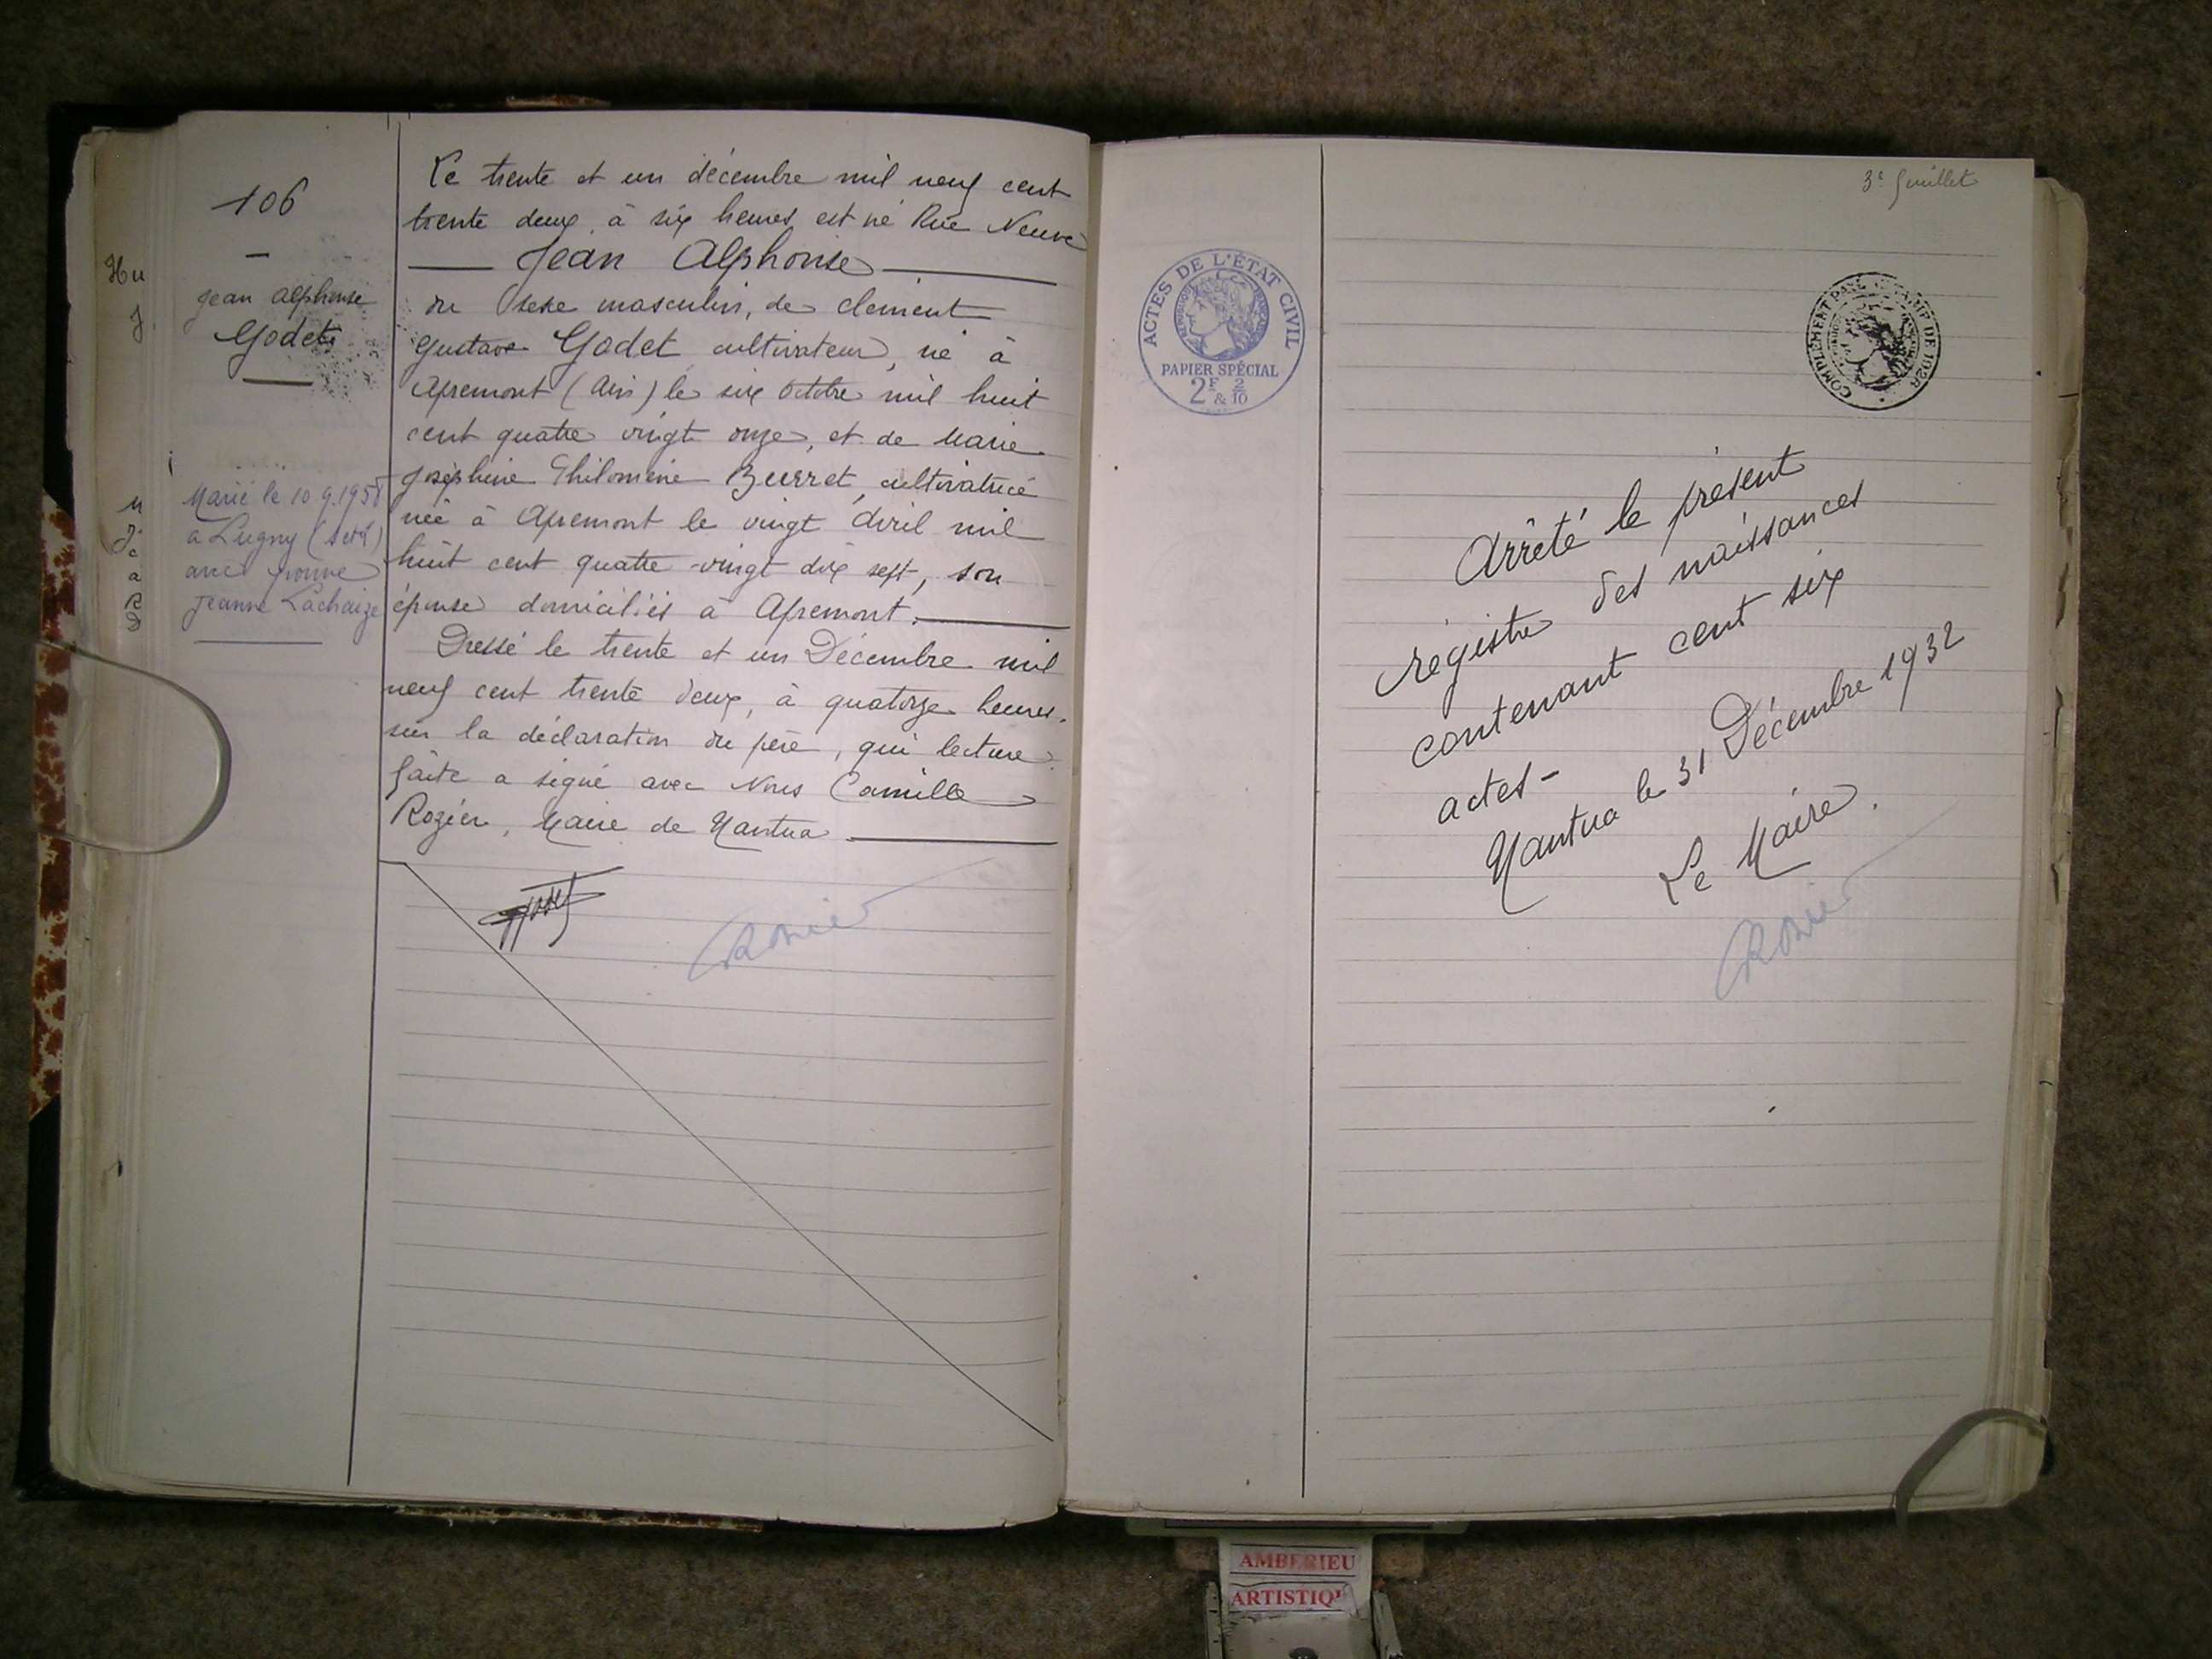 106
—
Jean Alphonse
Godet
Marié le 10.9.195
à Lugny (
avec Yvonne
Jeanne Lachaize
Le trente et un décembre mil neuf cent
trente deux, à six heures est né Rue Neuve
— Jean Alphonse —
du sexe masculin, de Clément
Gustave Godet cultivateur, né à
Apremont (Ain) le six Octobre mil huit
cent quatre vingt onze, et de Marie
Joséphine Philomène Burret, cultivatrice
née à Apremont le vingt Avril mil
huit cent quatre-vingt dix sept, son
épouse domiciliés à Apremont.
Dressé le trente et un Décembre mil
neuf cent trente deux, à quatorze heures,
sur la déclaration du père, qui lecture
faite a signé avec Nous Camille
Rozier, Maire de Nantua
Godet
CRozier
3e feuillet
ACTES DE L'ÉTAT CIVIL
PAPIER SPÉCIAL
2F & 2/10
COMPLÉMENT PAYÉ
Arrêté le présent
régistre des naissances
contenant cent six
actes -
Nantua le 31 Décembre 1932
Le Maire.
CRozier
AMBERIEU
ARTISTIQU